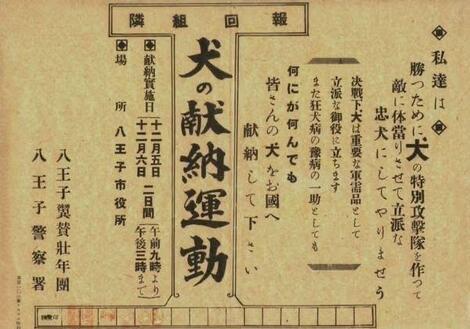 隣組回報
私達は
勝つために、犬の特別攻撃隊を作つて
敵に体當りさせて立派な
忠犬にしてやりませう
決戦下犬は重要な軍需品として
立派な御役に立ちます
また狂犬病の豫病の一助としても
何にが何んでも
皆さんの犬をお國へ
献納して下さい
犬の献納運動
献納實施日 十二月五日 十二月六日 二日間 午前九時より 午後三時まで
場所 八王子市役所
八王子翼賛壯年團
八王子警察署